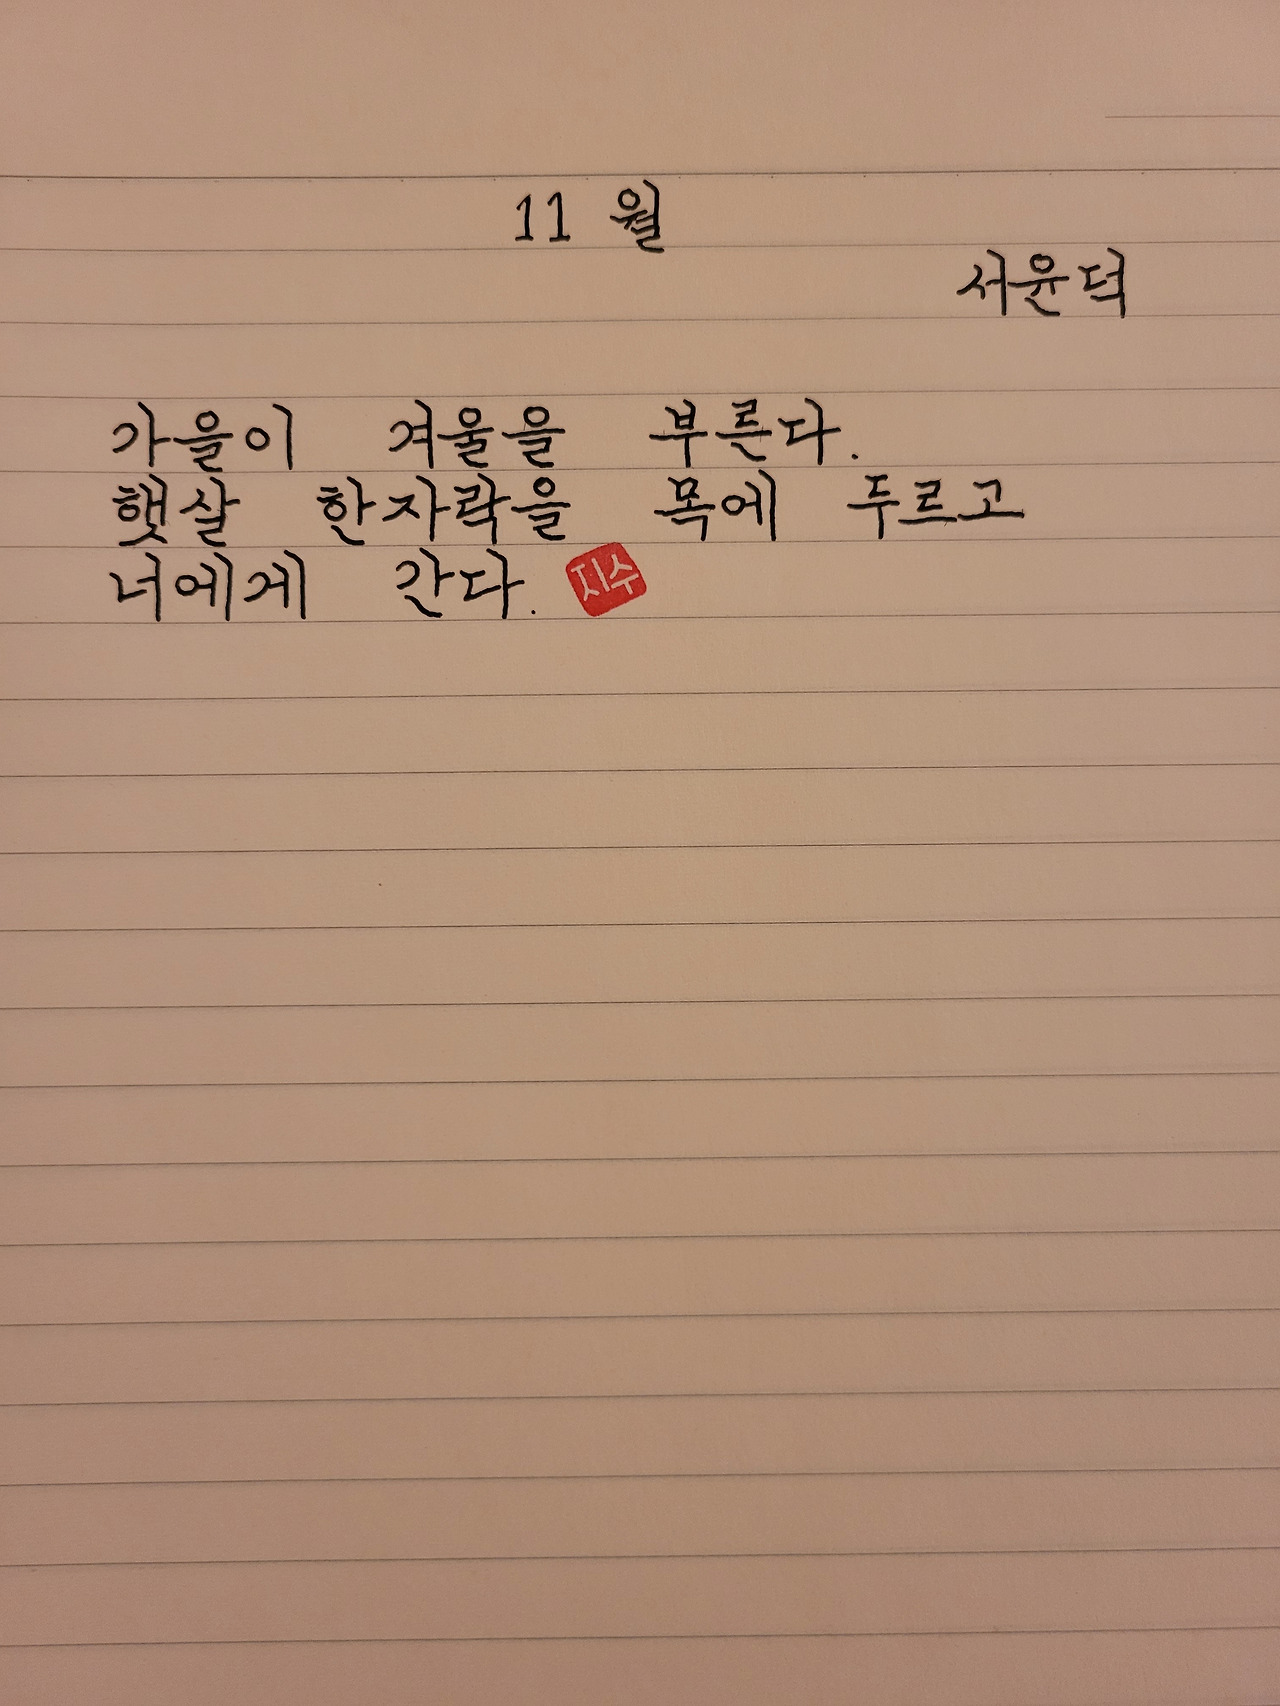 11 월
서윤덕
가을이 겨울을 부른다.
햇살 한자락을 목에 두르고
너에게 간다. 지수